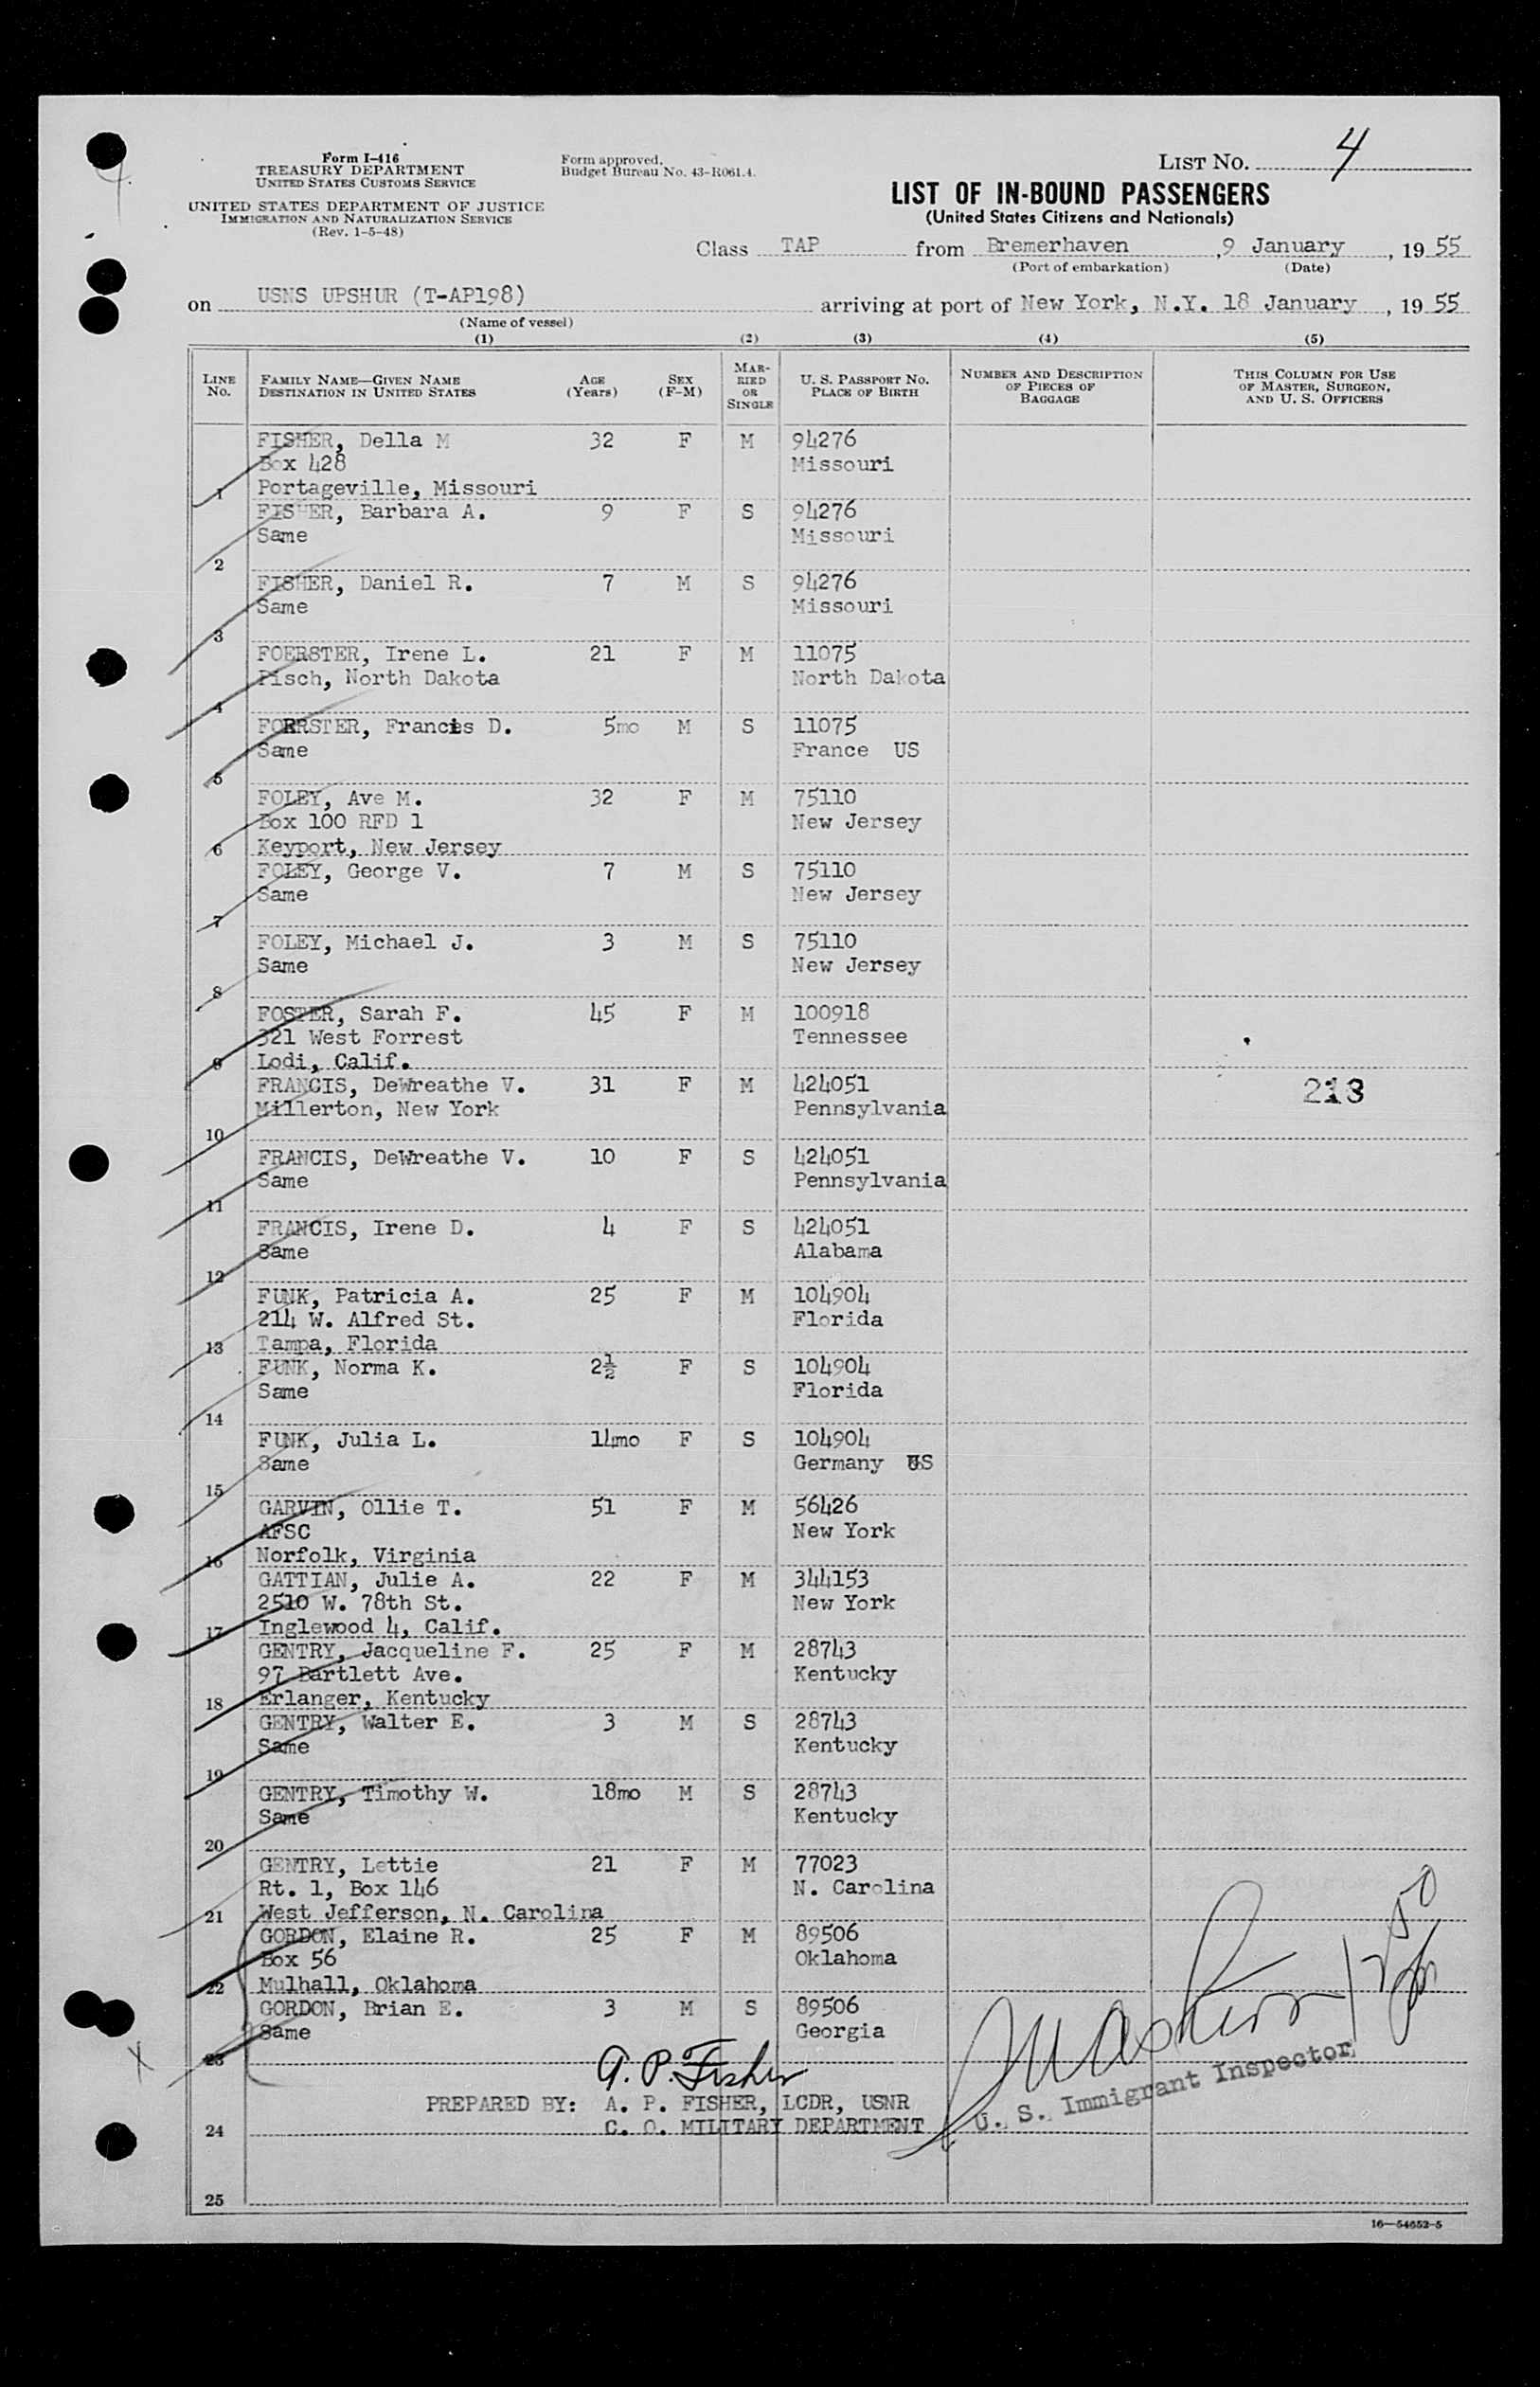 4
Form I-416
TREASURY DEPARTMENT
UNITED STATES CUSTOMS SERVICE
UNITED STATES DEPARTMENT OF JUSTICE
IMMIGRATION AND NATURALIZATION SERVICE
(Rev. 1-5-48)
Form approved.
Budget Bureau No. 43-R061.4.
LIST NO. 4
LIST OF IN-BOUND PASSENGERS
(United States Citizens and Nationals)
Class TAP from Bremerhaven, 9 January, 19 55
(Port of embarkation) (Date)
on USNS UPSHUR (T-AP198) arriving at port of New York, N.Y. 18 January, 19 55
(Name of vessel)
(1) (2) (3) (4) (5)
LINE NO. FAMILY NAME—GIVEN NAME DESTINATION IN UNITED STATES AGE (Years) SEX (F-M) MARRIED OR SINGLE U. S. PASSPORT NO. PLACE OF BIRTH NUMBER AND DESCRIPTION OF PIECES OF BAGGAGE THIS COLUMN FOR USE OF MASTER, SURGEON, AND U. S. OFFICERS
FISHER, Della M 32 F M 94276
Box 428 Missouri
1 Portageville, Missouri
FISHER, Barbara A. 9 F S 94276
Same Missouri
2
FISHER, Daniel R. 7 M S 94276
Same Missouri
3
FOERSTER, Irene L. 21 F M 11075
Pisch, North Dakota North Dakota
4
FOERSTER, Francis D. 5mo M S 11075
Same France US
5
FOLEY, Ave M. 32 F M 75110
Box 100 RFD 1 New Jersey
6 Keyport, New Jersey
FOLEY, George V. 7 M S 75110
Same New Jersey
7
FOLEY, Michael J. 3 M S 75110
Same New Jersey
8
FOSTER, Sarah F. 45 F M 100918
321 West Forrest Tennessee
9 Lodi, Calif.
FRANCIS, DeWreathe V. 31 F M 424051 213
Millerton, New York Pennsylvania
10
FRANCIS, DeWreathe V. 10 F S 424051
Same Pennsylvania
11
FRANCIS, Irene D. 4 F S 424051
Same Alabama
12
FUNK, Patricia A. 25 F M 104904
214 W. Alfred St. Florida
13 Tampa, Florida
FUNK, Norma K. 2½ F S 104904
Same Florida
14
FUNK, Julia L. 14mo F S 104904
Same Germany US
15
GARVIN, Ollie T. 51 F M 56426
AFSC New York
16 Norfolk, Virginia
GATTIAN, Julie A. 22 F M 344153
2510 W. 78th St. New York
17 Inglewood 4, Calif.
GENTRY, Jacqueline F. 25 F M 28743
97 Bartlett Ave. Kentucky
18 Erlanger, Kentucky
GENTRY, Walter E. 3 M S 28743
Same Kentucky
19
GENTRY, Timothy W. 18mo M S 28743
Same Kentucky
20
GENTRY, Lettie 21 F M 77023
Rt. 1, Box 146 N. Carolina
21 West Jefferson, N. Carolina
GORDON, Elaine R. 25 F M 89506
Box 56 Oklahoma
22 Mulhall, Oklahoma
GORDON, Brian E. 3 M S 89506
Same Georgia
23
X
A. P. Fisher
PREPARED BY: A. P. FISHER, LCDR, USNR
C. O. MILITARY DEPARTMENT
U. S. Immigrant Inspector
24
25
16—54652-5